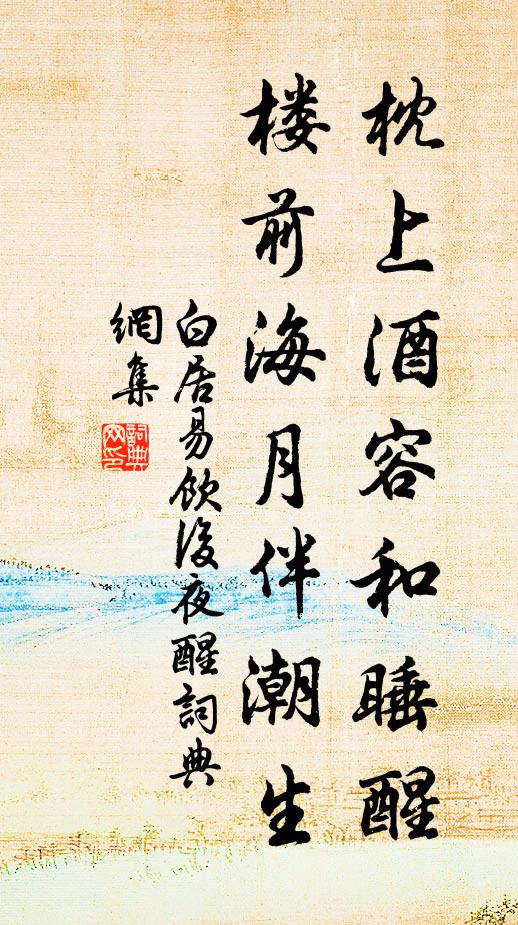 枕上酒容和睡醒
楼前海月伴潮生
白居易飲後夜醒詞典
網集
詞典